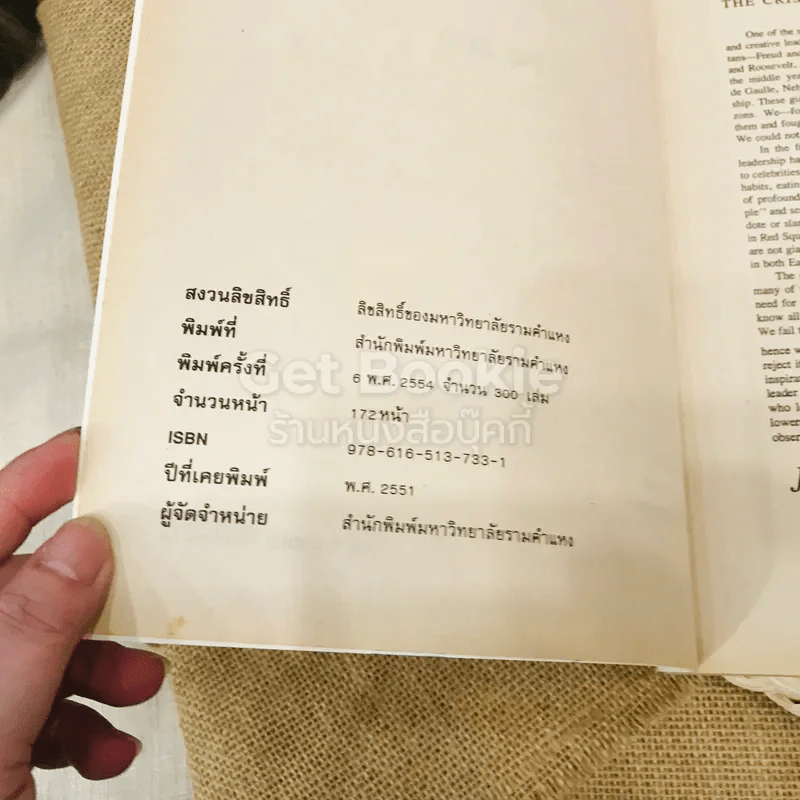 สงวนลิขสิทธิ์ ลิขสิทธิ์ของมหาวิทยาลัยรามคำแหง
พิมพ์ที่ สำนักพิมพ์มหาวิทยาลัยรามคำแหง
พิมพ์ครั้งที่ 6 พ.ศ. 2554 จำนวน 300 เล่ม
จำนวนหน้า 172 หน้า
ISBN 978-616-513-733-1
ปีที่เคยพิมพ์ พ.ศ. 2551
ผู้จัดจำหน่าย สำนักพิมพ์มหาวิทยาลัยรามคำแหง
Get Bookie
ร้านหนังสือบุ๊คกี้
THE CRIS
One of the
and creative lead
tans—Freud and
and Roosevelt,
the middle yea
de Gaulle, Neh
ship. These gi
zons. We—fo
them and foug
We could not
In the fi
leadership ha
to celebrities
habits, eatin
of profound
ple" and se
dote or slan
in Red Squ
are not gia
in both Ea
The
many of
need for
know all
We fail
hence w
reject i
inspira
leader
who l
lower
obser